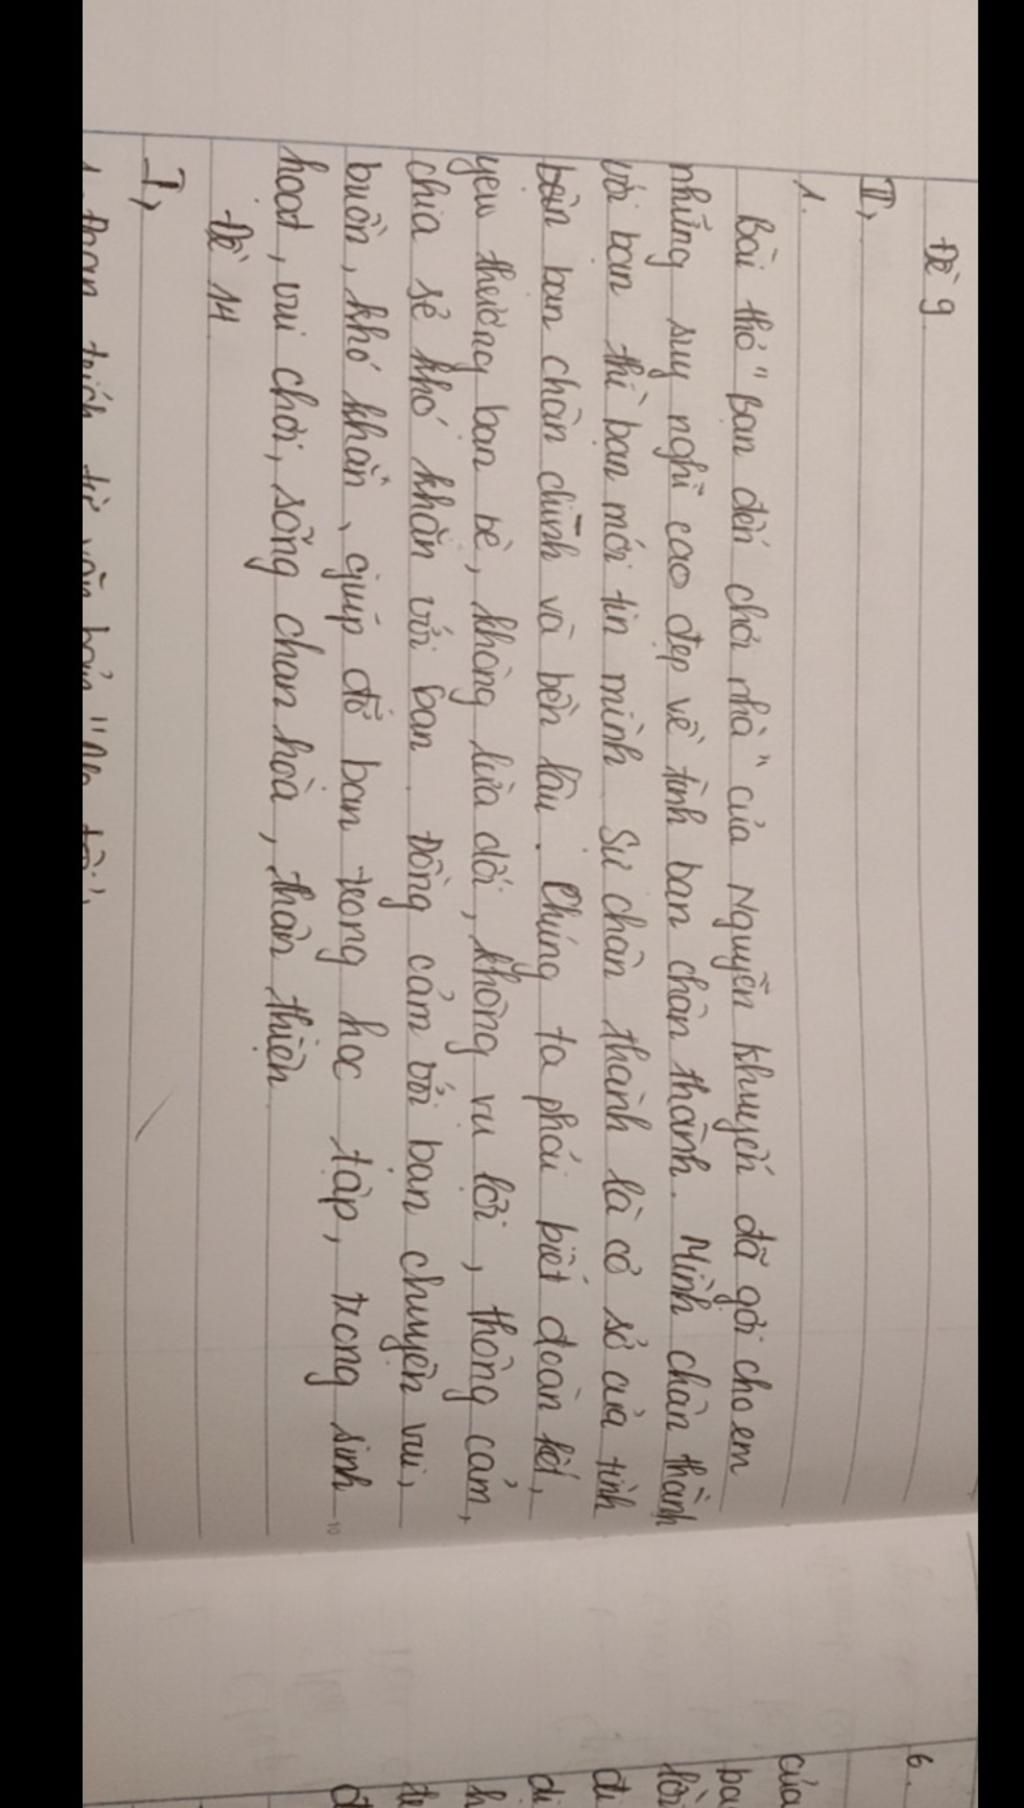 Đề 9
II,
1.
Bài thơ "Bạn đến chơi nhà" của Nguyễn Khuyến đã gợi cho em
những suy nghĩ cao đẹp về tình bạn chân thành. Mình chân thành
với bạn thì bạn mới tin mình. Sự chân thành là cơ sở của tình
bạn chân chính và bền lâu. Chúng ta phải biết đoàn kết,
yêu thương bạn bè, không lừa dối, không vụ lợi, thông cảm,
chia sẻ khó khăn với bạn. Đồng cảm với bạn chuyện vui,
buồn, khó khăn, giúp đỡ bạn trong học tập, trong sinh
hoạt, vui chơi, sống chan hòa, thân thiện.
Đề 14
I,
1. Đoạn trích từ văn bản
6.
của